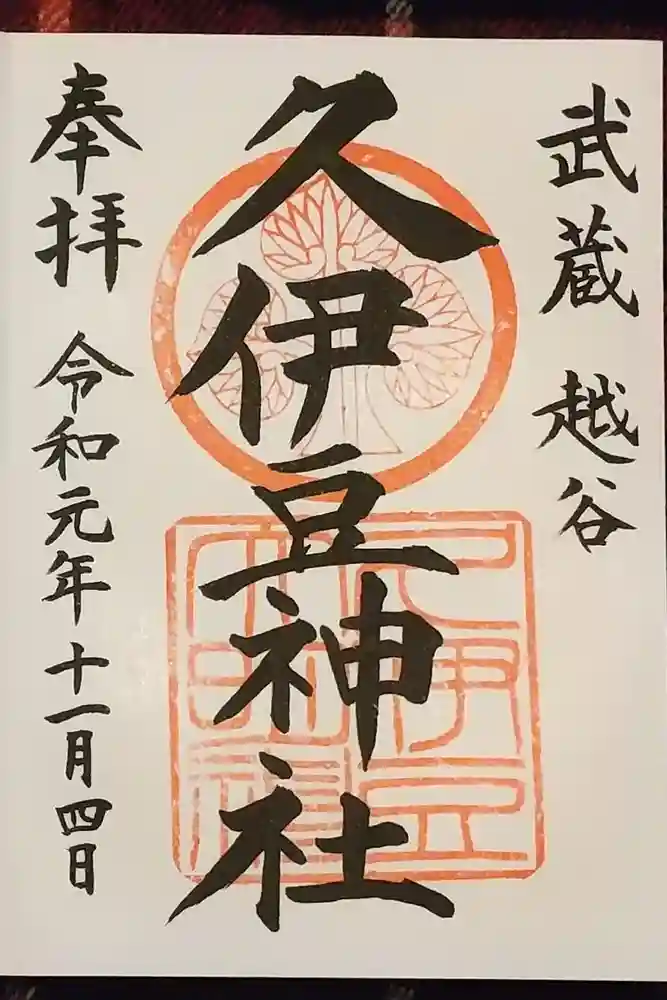 武蔵 越谷
久伊豆神社
奉拝 令和元年十一月四日